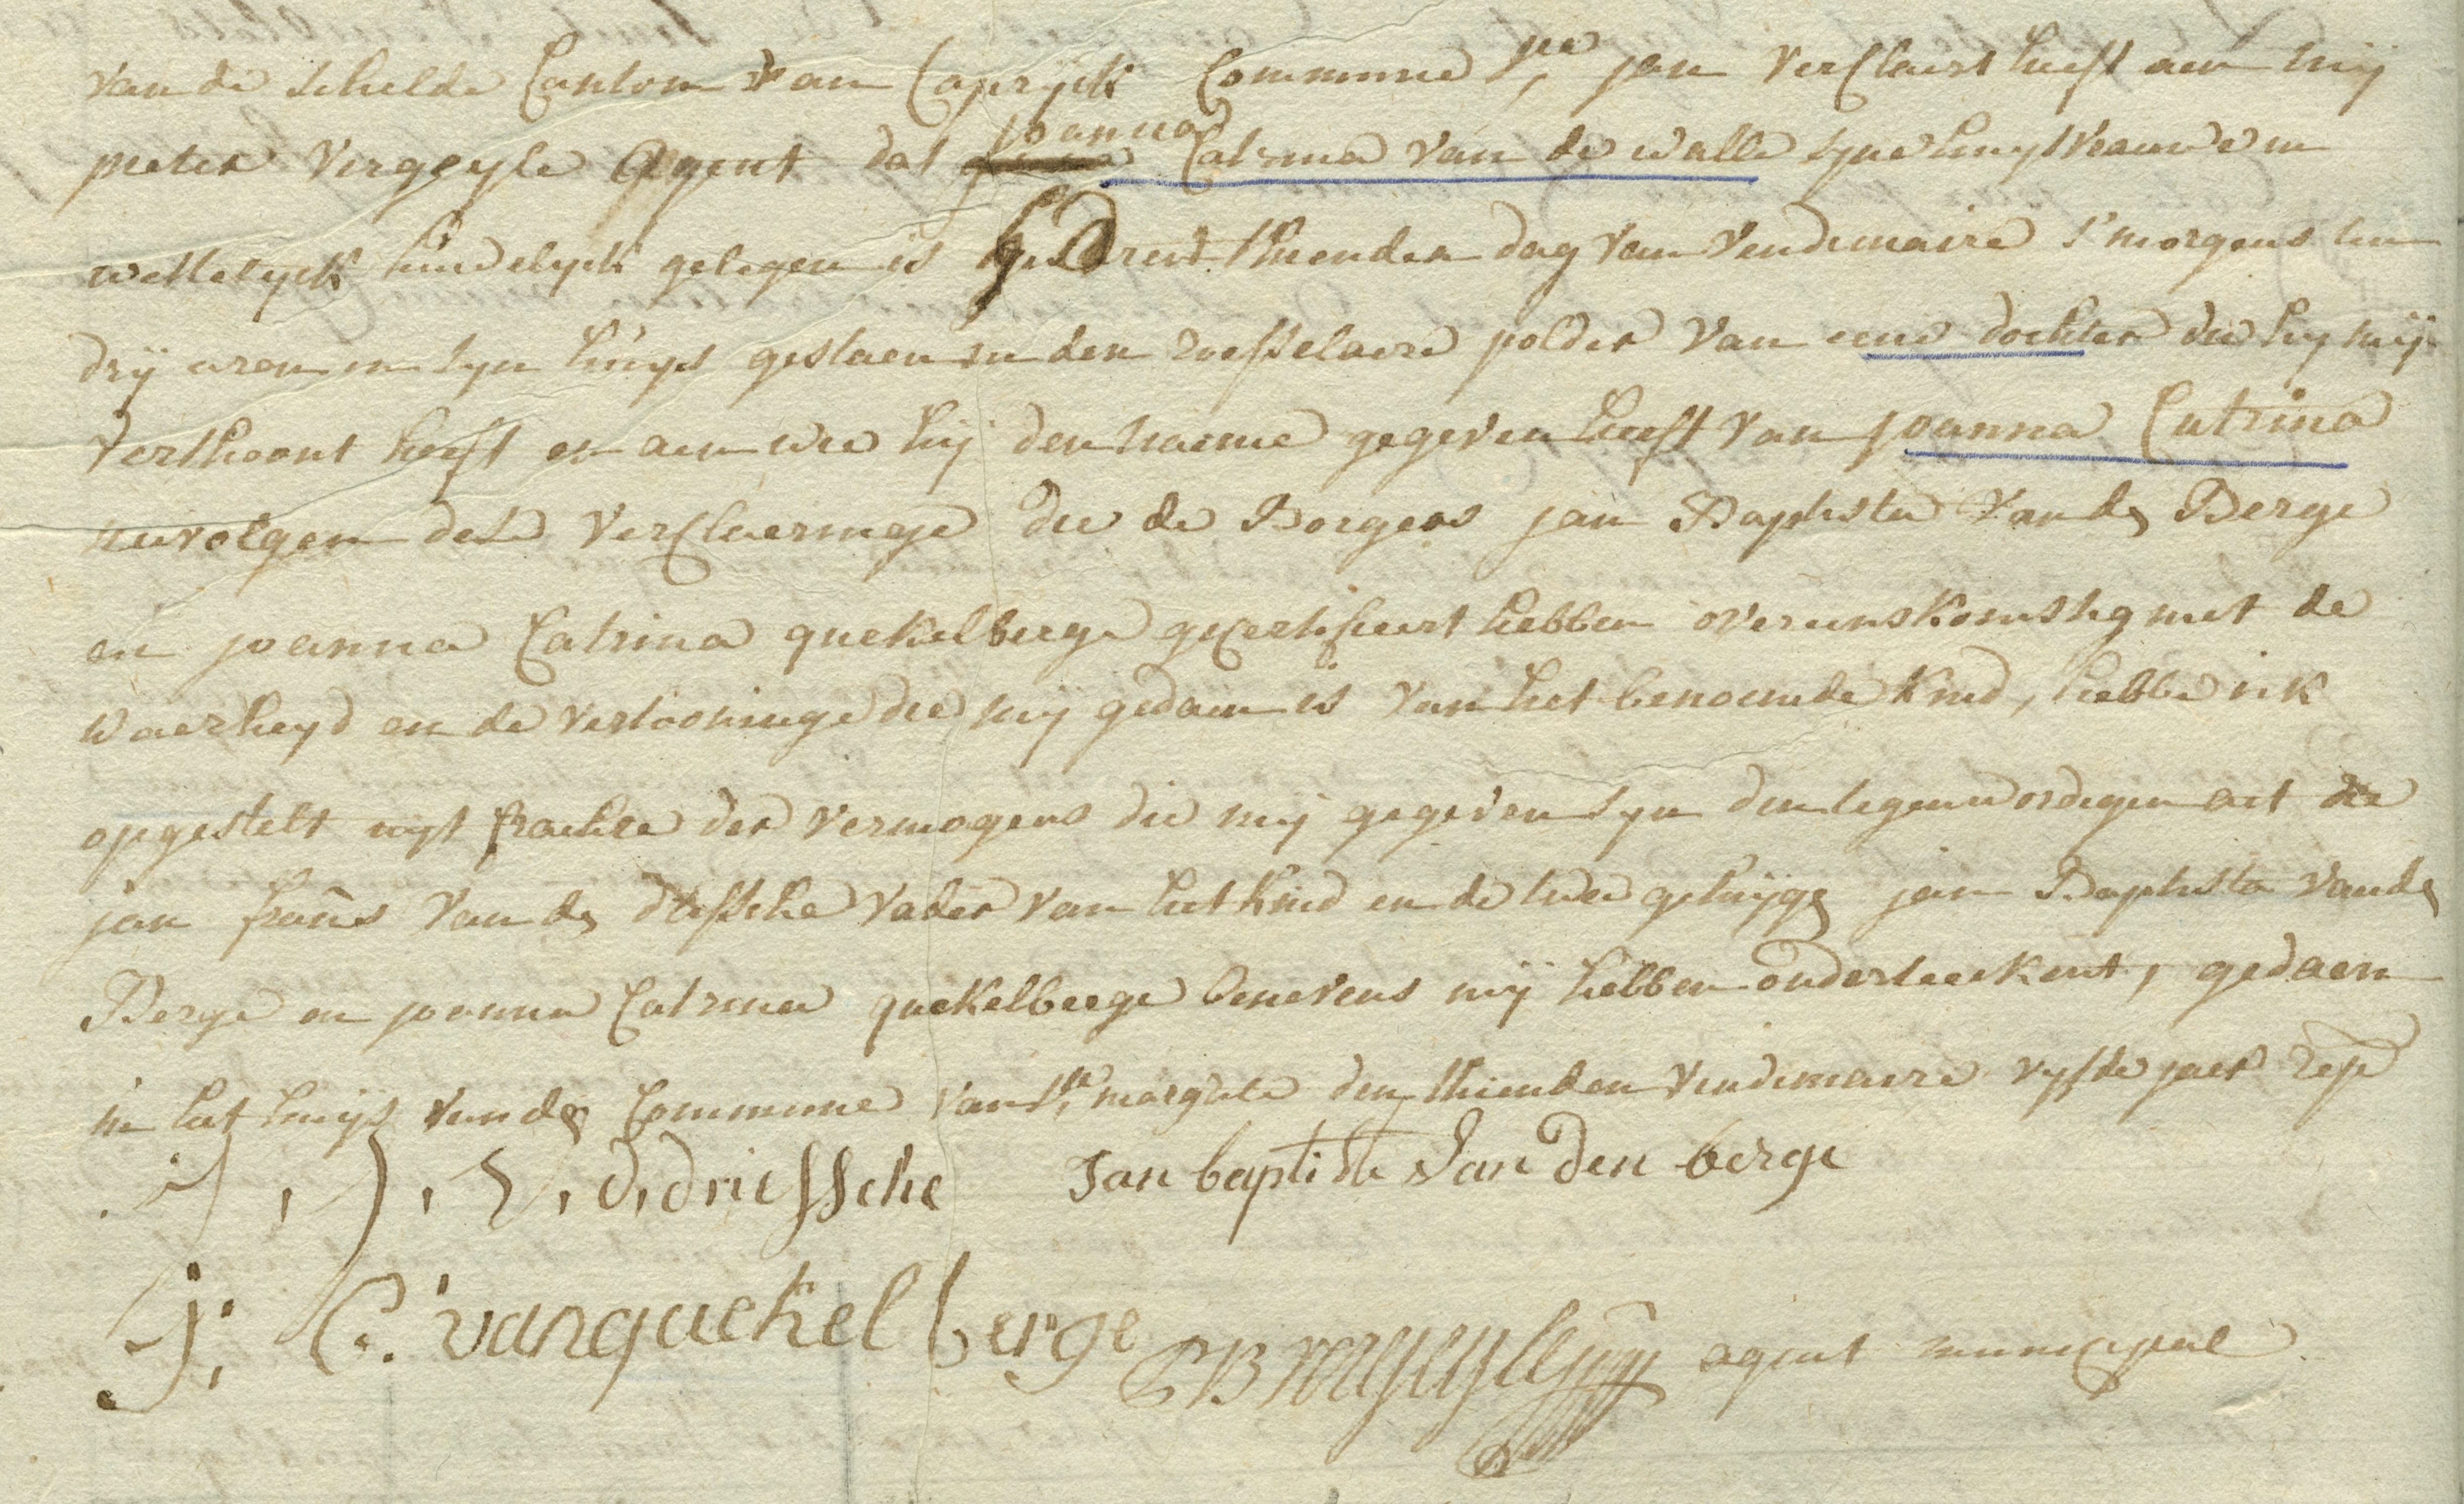 van de schelde Canton van Capryck Commune Vre jan verClaert heeft aen mij
pieter vergeyle Agent dat joanna Catrina van de walle syne huysvrauwe in
wettelyck huwelyck gelegen is den thienden dag van vendimaire s'morgens ten
drij uren in syn huys gestaen in den roesselaere polder van eene dochter die hy mij
verthoont heeft en aen wie hij den naeme gegeven heeft van joanna Catrina
naervolgen dese verClaeringe die de Borgers jan Baptista Vande Berge
en joanna Catrina quekelberge geCertifieert hebben overeenskomstig met de
waerheyd en de vertooninge die mij gedaen is van het benoemde kind, hebbe ick
opgestelt uyt krachte der vermogens die mij gegeven syn den tegenwordigen act die
jan frans Vande driessche vader van het kind en de twee getuyge jan Baptista vande
Berge en joanna Catrina quekelberge benevens mij hebben onderteekent, gedaen
in het huys vande Commune van Ste margrite den thienden vendimaire vyfde jaer rep
J. F. V. d. driessche Jan baptiste Van Den berge
J: C. vanquekelberge PB vergeyle agent municipal